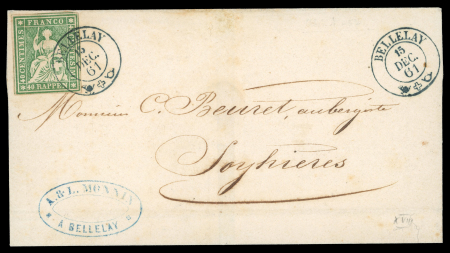 FRANCO
40 CENTIMES
40 RAPPEN
BELLELAY
15
DEC.
61
BELLELAY
15
DEC.
61
Monsieur C. Beuret, aubergiste
Soyhières
A. & L. MONNIN
A BELLELAY